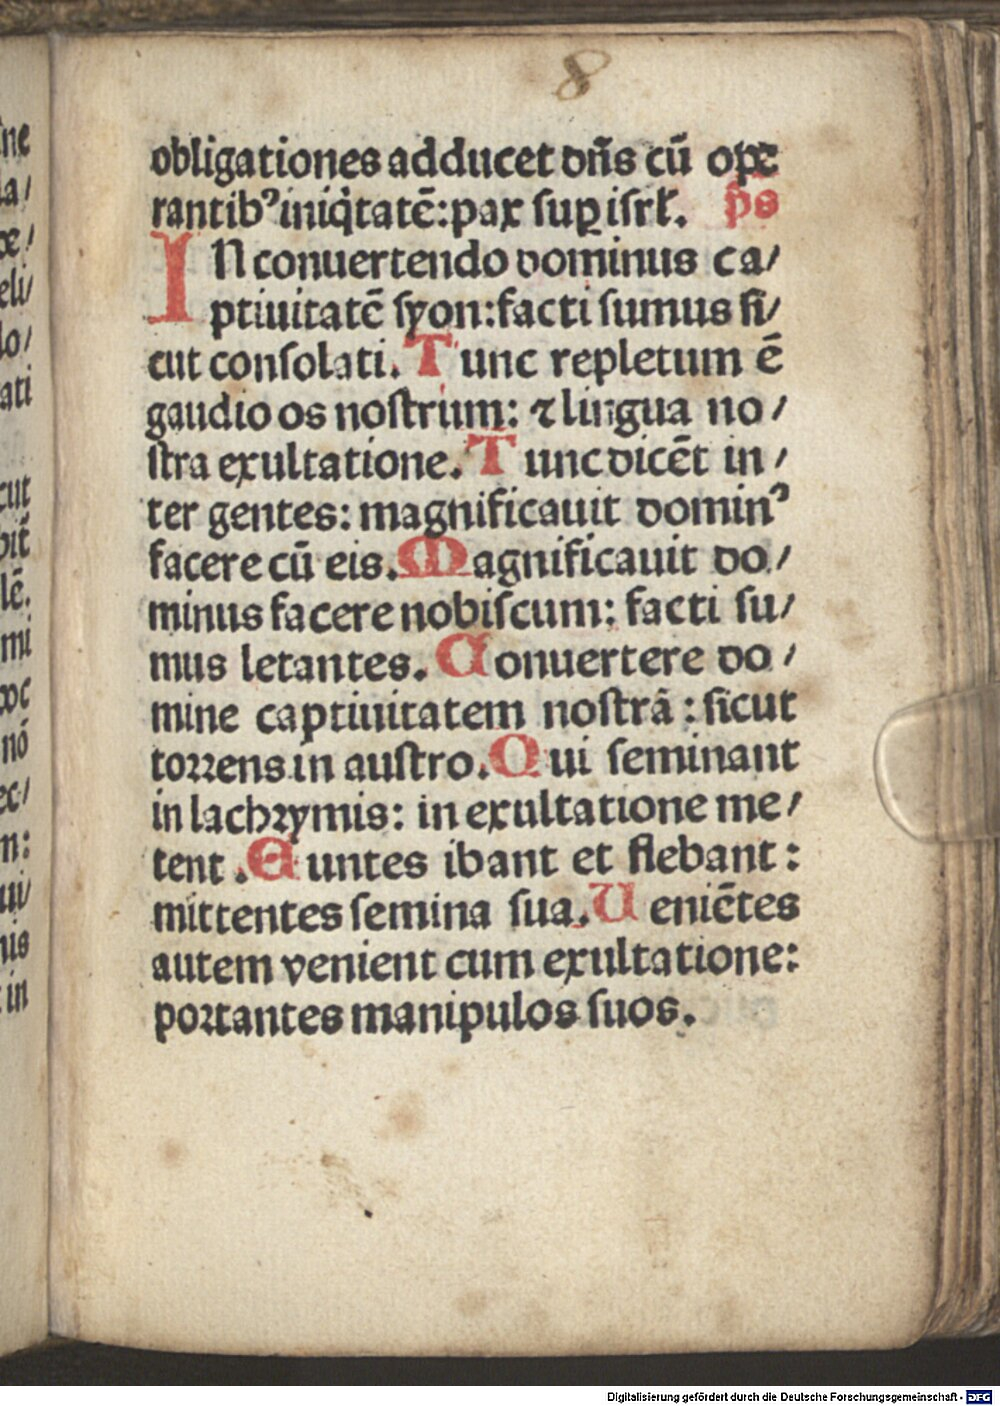 8
obligationes adducet dñs cū ope
rantibꝰ iniq̇tatē: pax suꝑ isrł. p̄s
IN conuertendo dominus ca/
ptiuitatē syon: facti sumus si/
cut consolati. Tunc repletum ē
gaudio os nostrum: ⁊ lingua no/
stra exultatione. Tunc dicēt in/
ter gentes: magnificauit dominꝰ
facere cū eis. Magnificauit do/
minus facere nobiscum: facti su/
mus letantes. Conuertere do/
mine captiuitatem nostrā: sicut
torrens in austro. Qui seminant
in lachrymis: in exultatione me/
tent. Euntes ibant et flebant:
mittentes semina sua. Ueniētes
autem venient cum exultatione:
portantes manipulos suos.
Digitalisierung gefördert durch die Deutsche Forschungsgemeinschaft - DFG